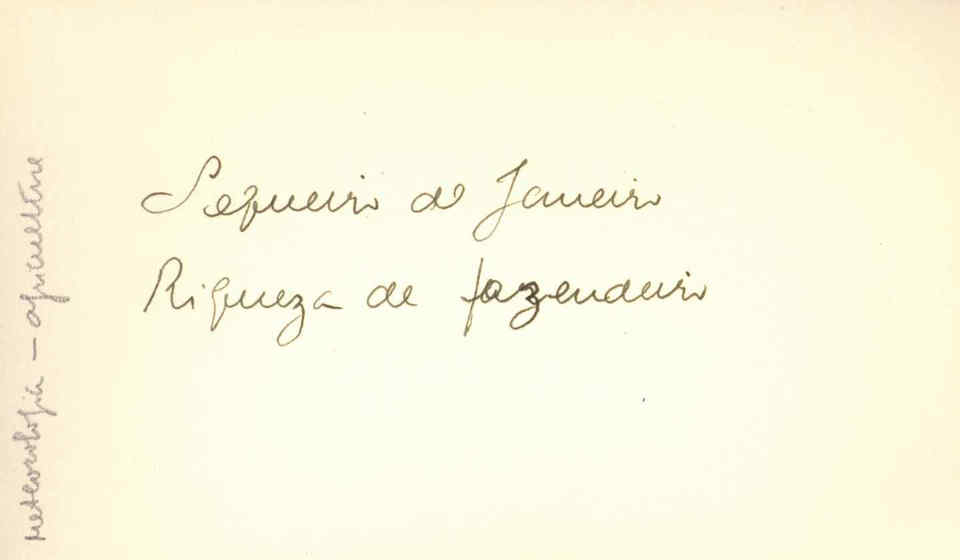 Sequeiro de Janeiro
Riqueza de fazendeiro
meteorologia – agricultura